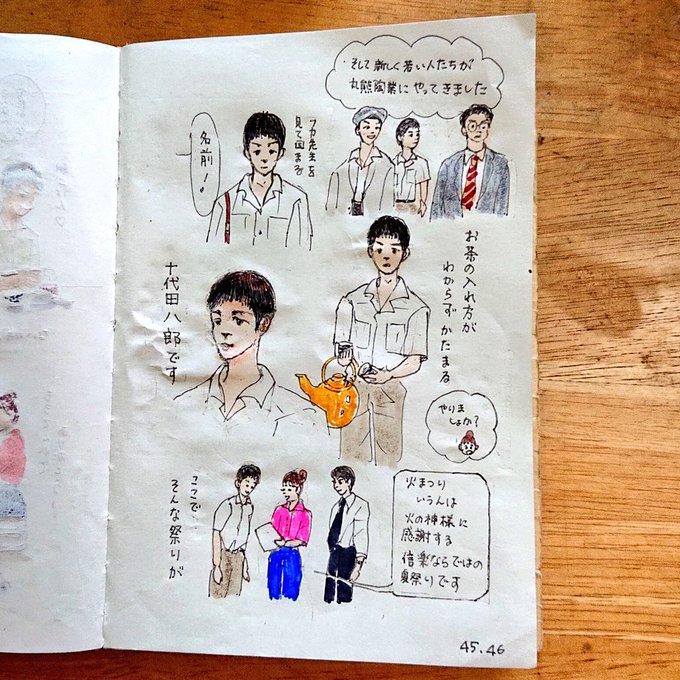 そして新しく若い人たちが
丸熊陶業にやってきました
フカ先生を
見て固まる
名前!!
お茶の入れ方が
わからずかたまる
十代田八郎です
やりま
しょか?
火まつり
いうんは
火の神様に
感謝する
信楽ならではの
夏祭りです
ここで…
そんな祭りが
45.46